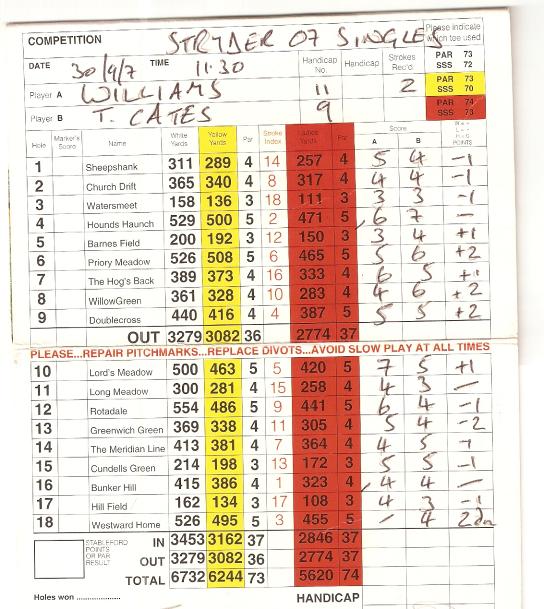 COMPETITION STRYDER 07 SINGLES Please indicate which tee used
DATE 30/9/7 TIME 11.30 Handicap No. Handicap Strokes Rec'd PAR 73 SSS 72
Player A WILLIAMS 11 2 PAR 73 SSS 70
Player B T. CATES 9 PAR 74 SSS 73
Hole Marker's Score Name White Yards Yellow Yards Par Stroke Index Ladies Yards Par Score A B POINTS
1 Sheepshank 311 289 4 14 257 4 5 4 -1
2 Church Drift 365 340 4 8 317 4 4 4 -1
3 Watersmeet 158 136 3 18 111 3 3 3 -1
4 Hounds Haunch 529 500 5 2 471 5 6 7 -
5 Barnes Field 200 192 3 12 150 3 3 4 +1
6 Priory Meadow 526 508 5 6 465 5 5 6 +2
7 The Hog's Back 389 373 4 16 333 4 6 5 +1
8 WillowGreen 361 328 4 10 283 4 4 6 +2
9 Doublecross 440 416 4 4 387 5 5 5 +2
OUT 3279 3082 36 2774 37
PLEASE...REPAIR PITCHMARKS...REPLACE DIVOTS...AVOID SLOW PLAY AT ALL TIMES
10 Lord's Meadow 500 463 5 5 420 5 7 5 +1
11 Long Meadow 300 281 4 15 258 4 4 3 -
12 Rotadale 554 486 5 9 441 5 6 4 -1
13 Greenwich Green 369 338 4 11 305 4 5 4 -2
14 The Meridian Line 413 381 4 7 364 4 4 5 -1
15 Cundells Green 214 198 3 13 172 3 5 5 -1
16 Bunker Hill 415 386 4 1 323 4 4 4 -
17 Hill Field 162 134 3 17 108 3 4 3 -1
18 Westward Home 526 495 5 3 455 5 - 4 2dn
STABLEFORD POINTS OR PAR RESULT
IN 3453 3162 37 2846 37
OUT 3279 3082 36 2774 37
TOTAL 6732 6244 73 5620 74
Holes won .................... HANDICAP